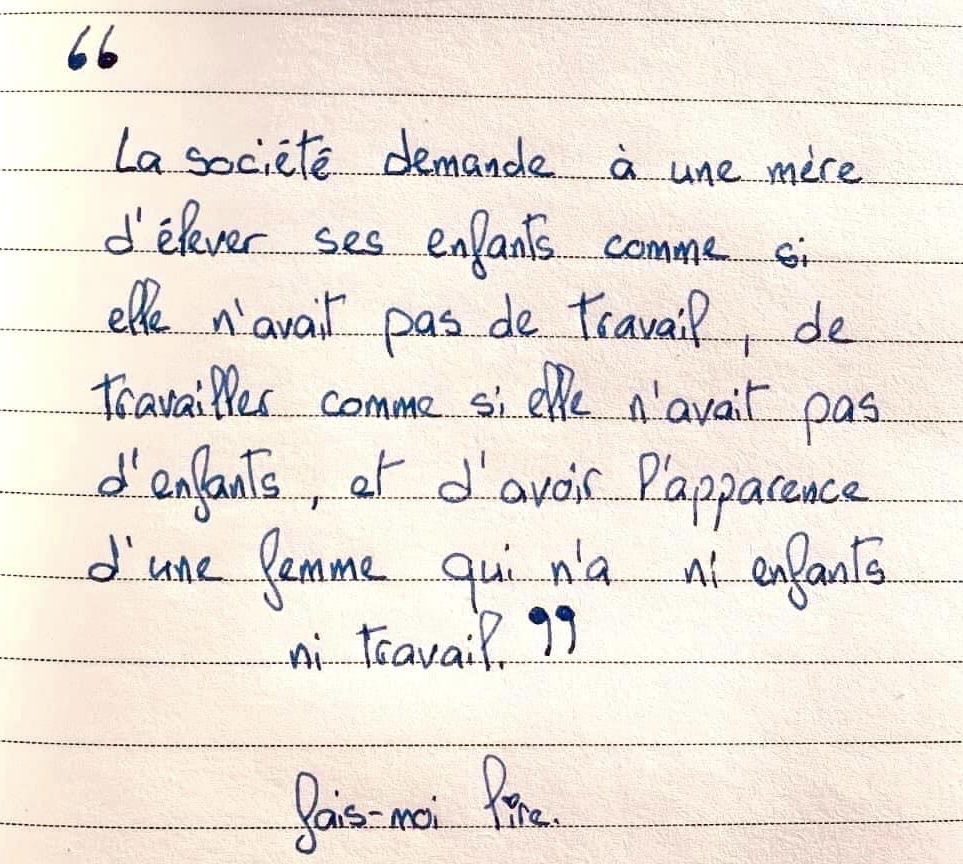 “
La société demande à une mére
d'élever ses enfants comme si
elle n'avait pas de travail, de
travailler comme si elle n'avait pas
d'enfants, et d'avoir l'apparence
d'une femme qui n'a ni enfants
ni travail. ”
fais-moi lire.